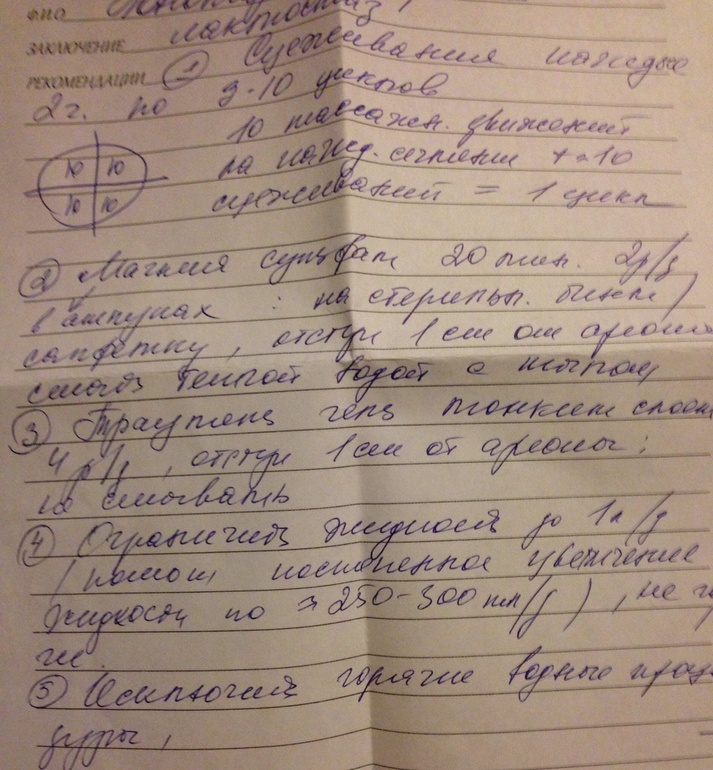 ФИО
ЗАКЛЮЧЕНИЕ лактостаз
РЕКОМЕНДАЦИИ ① Сцеживания каждые
2 г. по 9-10 циклов
10 массажн. движений
10 10
на кажд. сегмент + 10
10 10
сцеживаний = 1 цикл
② Магния сульфат 20 мин. 2р/д
в ампулах : на стерильн. бинт/
салфетку, отступ 1 см от ареолы
смыть теплой водой с мылом
③ Траумель гель тонким слоем
4 р/д, отступ 1 см от ареолы;
не смывать
④ Ограничить жидкость до 1л/д
(потом постепенное увеличение
жидкости по ≈ 250-300 мл/д), не го
⑤ Исключить горячие водные проце
дуры,